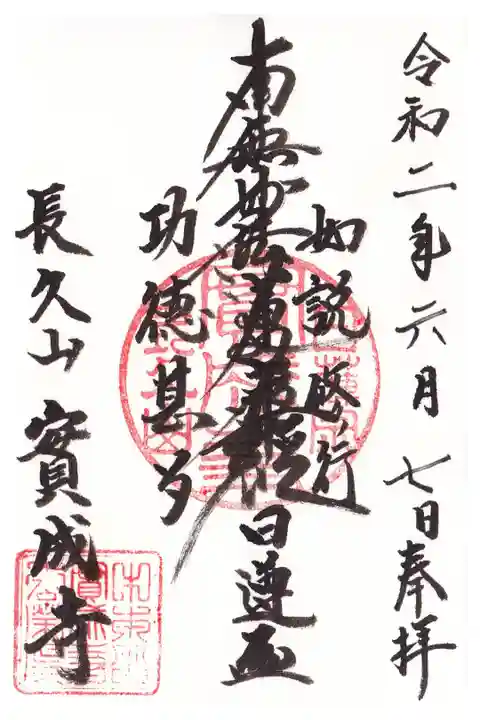 令和二年六月七日奉拝
如説修行
南無妙法蓮華経 日遵
功徳甚多
長久山 實成寺